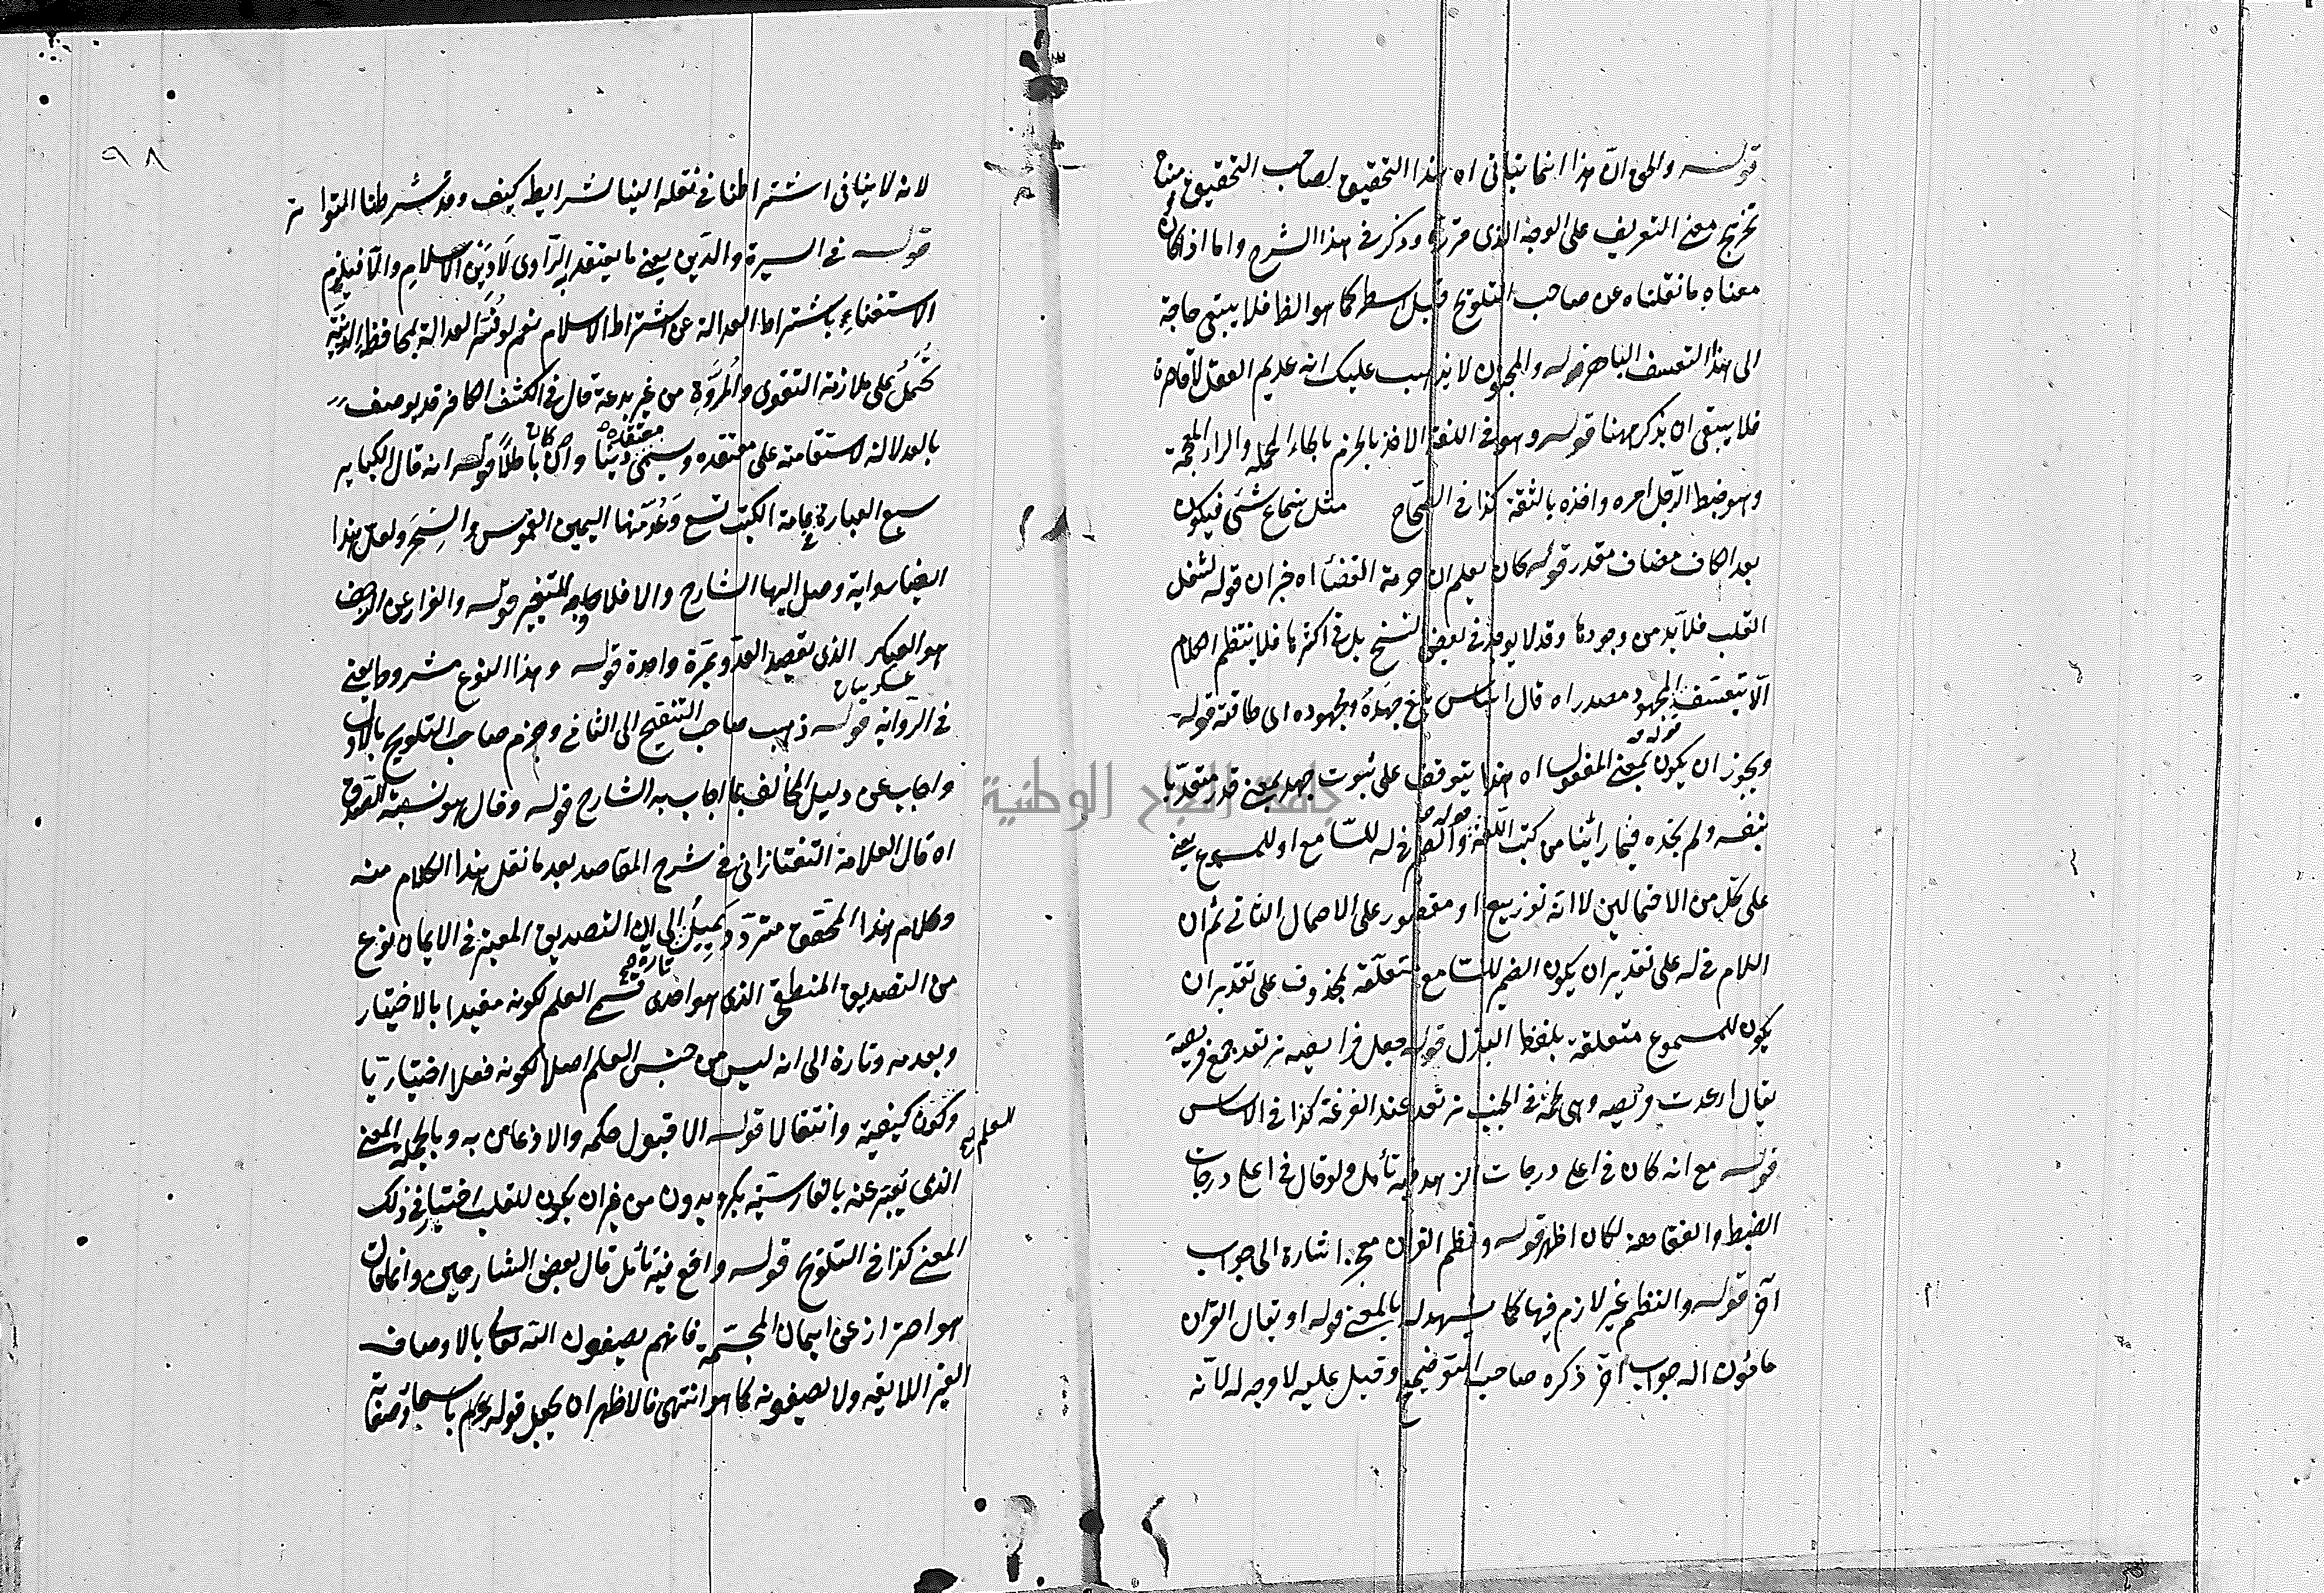 قوله والحق ان هذا انما ينافى اه هذا التحقيق لصاحب التحقيق
تخريج معنى التعريف على الوجه الذى قرره وذكر فى هذا الشرح واما اذا كان
معناه ما نقلناه عن صاحب التلويح قبل اسطر كما هو الظا فلا يبقى حاجة
الى هذا التعسف قوله والمجنون لا يذهب عليك انه عديم العقل لا قاصره
فلا يبقى ان يذكر ههنا قوله وهو فى اللغة الاخذ بالحزم بالحاء المهملة والزاء المعجمة
وهو ضبط الرجل امره واخذه بالثقة كذا فى الصحاح مثل سماع شئ فيكون
بعد الكاف مضاف مقدر قوله كان يعلم ان حرمة القضا اه خبر ان قوله لشغل
القلب فلا بد من وجودها وقد لا يوجد فى بعض النسخ بل فى اكثرها فلا ينتظم الكلام
الا بتعسف المجهود مصدر اه قال الاساس بلغ جهده ومجهوده اى طاقته قوله
ويجوز ان يكون بمعنى المفعول اه هذا يتوقف على ثبوت جهد بمعنى قدر متعديا
بنفسه ولم نجده فيما رأينا من كتب اللغة قوله والضمير فى له للسامع او للمسموع يعنى
على كل من الاحتمالين لا انه توزيع او مقصور على الاحتمال الثانى ثم ان
اللام فى له على تقدير ان يكون الضمير للسامع متعلقة بمحذوف على تقدير ان
يكون للمسموع متعلقة بلفظ البذل قوله جعل فرايصه ترتعد جمع فريصة
يقال ارعدت فريصه وهى لحمة فى الجنب ترتعد عند الفزعة كذا فى الاساس
قوله مع انه كان فى اعلى درجات الزهد فيه تأمل ولو قال فى اعلى درجات
الضبط والفقاهة لكان اظهر قوله ونظم القران معجز اشارة الى جواب
آخر قوله والنظم غير لازم فيها كما يشهد له بالمعنى قوله او يقال القرآن
مامون اه جواب آخر ذكره صاحب التوضيح وقيل عليه لا وجه له لانه
٩٨
لانه لا ينافى اشتراطنا فى نقله الينا شرايط كيف وقد شرطنا التواتر
قوله فى السيرة والدين يعنى ما يعتقد الراوى لا دين الاسلام والا فيلزم
الاستغناء باشتراط العدالة عن اشتراط الاسلام نعم لو فسر العدالة بمحافظة دينية
تحمل على ملازمة التقوى والمروة من غير بدعة قال فى الكشف الكافر قد يوصف
بالعدالة لاستقامته على معتقده ويسمى معتقده دينا وان كان باطلا قوله انه قال الكبايه
سبع العبارة فى عامة الكتب تسع وعد منها اليمين الغموس والسحر ولعل هذا
ايضا رواية وصل اليها الشارح والا فلا وجه للتغيير قوله والفرار عن الزحف
هو العسكر الذى يقصد العدو بمرة واحدة قوله وهذا النوع مشروط يعنى
عسكر بيان
فى الرواية قوله ذهب صاحب التنقيح الى الثانى وجزم صاحب التلويح بالاول
واجاب عن دليل المخالف بما اجاب به الشارح قوله وقال هو نسبة الصدق
اه قال العلامة التفتازانى فى شرح المقاصد بعد ما نقل هذا الكلام منه
وكلام هذا المحقق متردد يميل تارة الى ان التصديق المعتبر فى الايمان نوع
من التصديق المنطقى الذى هو احدى قسمى العلم لكونه مقيدا بالاختيار
وبعدمه وتارة الى انه ليس من جنس العلم اصلا لكونه فعلا اختياريا
وكون العلم كيفية وانتقالا قوله الا قبول حكمه والاذعان به وبالجملة المعنى
الذى يعبر عنه بالفارسية بكرويدون من غير ان يكون للقلب اختيار فى ذلك
المعنى كذا فى التلويح قوله واقع فيه تأمل قال بعض الشارحين وانما كان
هو احتراز عن ايمان المجسمة فانهم يصفون الله تعالى بالاوصاف
الغير اللايقة ولا يصفونه كما هو انتهى فالاظهر ان يجعل قوله باسمائه وصفاته